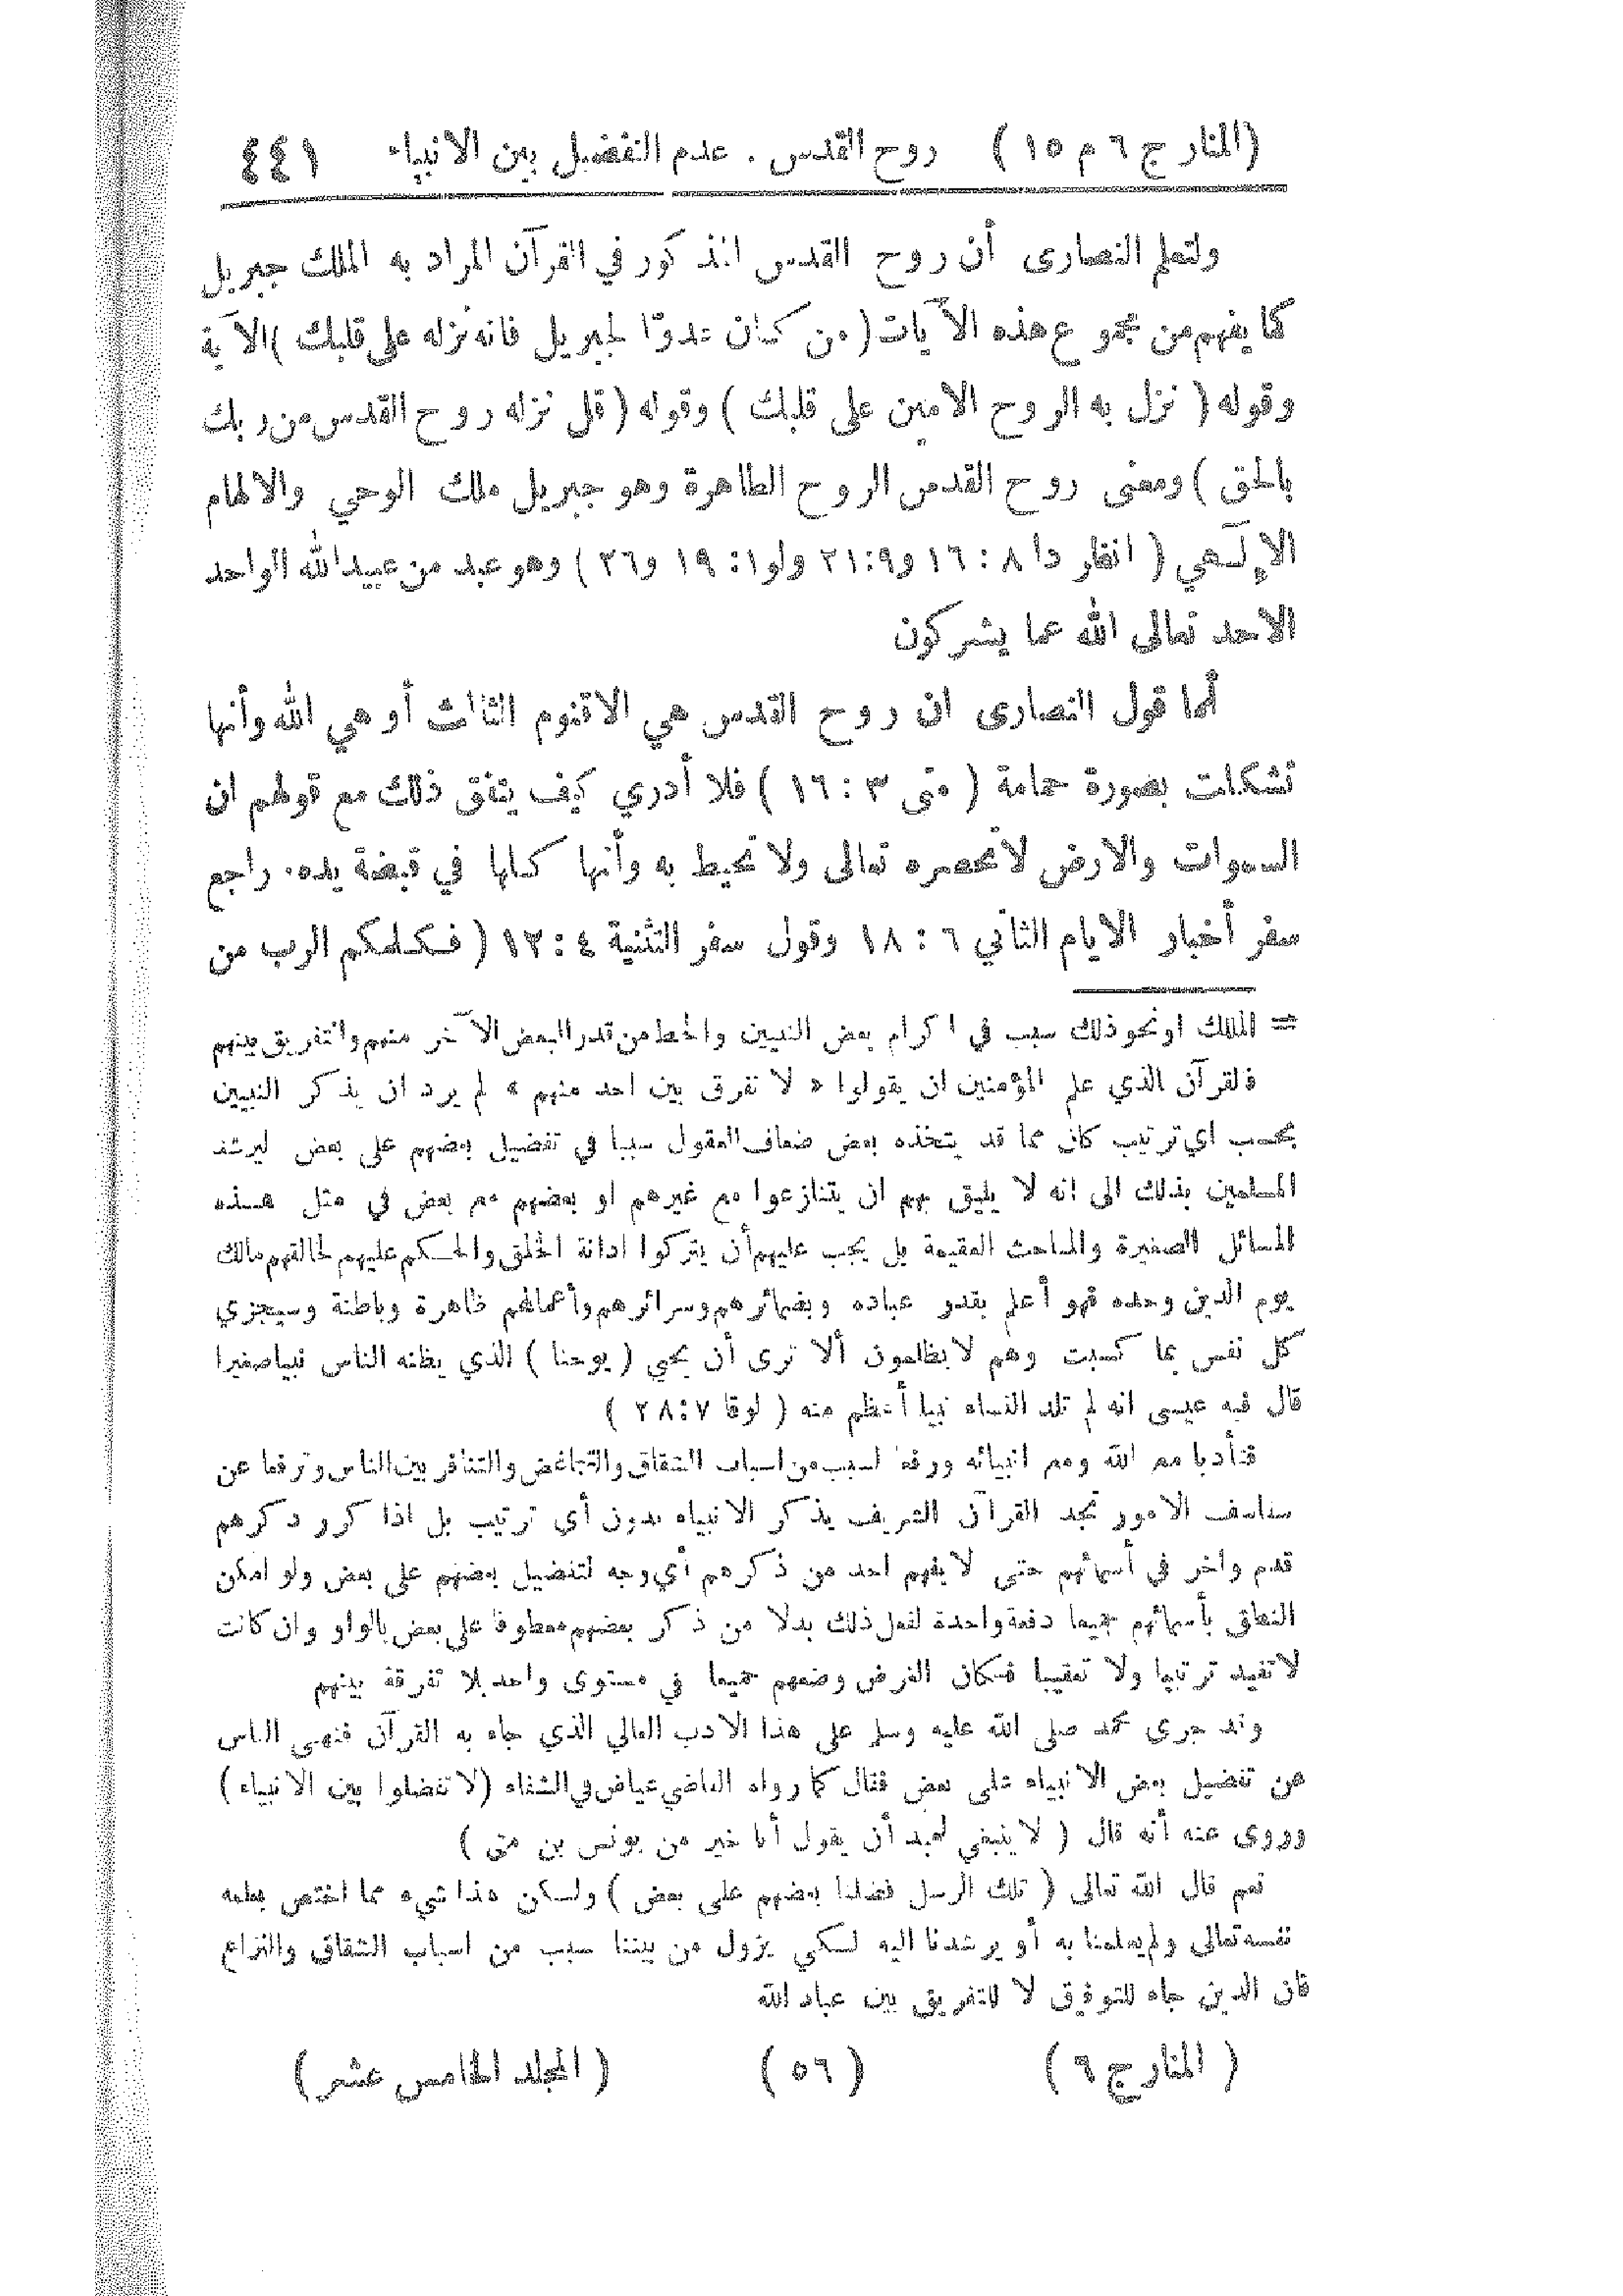 (المنار ج ٦ م ١٥ ) روح القدس . عدم التفضيل بين الانبياء ٤٤١
ولتعلم النصارى أن روح القدس المذكور في القرآن المراد به الملك جبريل
كما يفهم من مجموع هذه الآيات ( من كان عدوّا لجبريل فانه نزله على قلبك ) الآية
وقوله ( نزل به الروح الامين على قلبك ) وقوله ( قل نزله روح القدس من ربك
بالحق ) ومعنى روح القدس الروح الطاهرة وهو جبريل ملك الوحي والالهام
الإلهي ( انظر دا ٨ : ١٦ و٩:٢١ ولو١: ١٩ و٢٦ ) وهو عبد من عبيد الله الواحد
الاحد تعالى الله عما يشركون
أما قول النصارى ان روح القدس هي الاقنوم الثالث أو هي الله وأنها
تشكلت بصورة حمامة ( متى ٣ : ١٦ ) فلا أدري كيف يتفق ذلك مع قولهم ان
السموات والارض لاتحصره تعالى ولا تحيط به وأنها كلها في قبضة يده. راجع
سفر أخبار الايام الثاني ٦ : ١٨ وقول سفر التثنية ٤ : ١٢ ( فكلمكم الرب من
= الملك او نحو ذلك سبب في اكرام بعض النبيين والحط من قدر البعض الآخر منهم والتفريق بينهم
فالقرآن الذي علم المؤمنين ان يقولوا « لا نفرق بين احد منهم » لم يرد ان يذكر النبيين
بحسب اي ترتيب كان مما قد يتخذه بعض ضعاف العقول سببا في تفضيل بعضهم على بعض ليرشد
المسلمين بذلك الى انه لا يليق بهم ان يتنازعوا مع غيرهم او بعضهم مع بعض في مثل هذه
المسائل الصغيرة والمباحث العقيمة بل يجب عليهم أن يتركوا ادانة الخلق والحكم عليهم لخالقهم مالك
يوم الدين وحده فهو أعلم بقدر عباده وبضمائرهم وسرائرهم وأعمالهم ظاهرة وباطنة وسيجزي
كل نفس بما كسبت وهم لايظلمون ألا ترى أن يحيى ( يوحنا ) الذي يظنه الناس نبيا صغيرا
قال فيه عيسى انه لم تلد النساء نبيا أعظم منه ( لوقا ٧:٢٨ )
فتأدبا مع الله ومع انبيائه ورفعا لسبب من اسباب الشقاق والتباغض والتنافر بين الناس وترفعا عن
سفاسف الامور تجد القرآن الشريف يذكر الانبياء بدون أي ترتيب بل اذا كرر ذكرهم
قدم واخر في أسمائهم حتى لايفهم احد من ذكرهم أي وجه لتفضيل بعضهم على بعض ولو امكن
النطق بأسمائهم جميعا دفعة واحدة لفعل ذلك بدلا من ذكر بعضهم معطوفا على بعض بالواو وان كانت
لا تفيد ترتيبا ولا تعقيبا فكان الغرض وضعهم جميعا في مستوى واحد بلا تفرقة بينهم
وقد جرى محمد صلى الله عليه وسلم على هذا الادب العالي الذي جاء به القرآن فنهى الناس
عن تفضيل بعض الانبياء على بعض فقال كما رواه القاضي عياض في الشفاء (لا تفضلوا بين الانبياء)
وروي عنه أنه قال ( لا ينبغي لعبد أن يقول أنا خير من يونس بن متى )
نعم قال الله تعالى ( تلك الرسل فضلنا بعضهم على بعض ) ولكن هذا شيء مما اختص بعلمه
نفسه تعالى ولم يعلمنا به أو يرشدنا اليه لكي يزول من بيننا سبب من اسباب الشقاق والنزاع
فان الدين جاء للتوفيق لا للتفريق بين عباد الله
( المنار ج ٦ ) ( ٥٦ ) ( المجلد الخامس عشر )